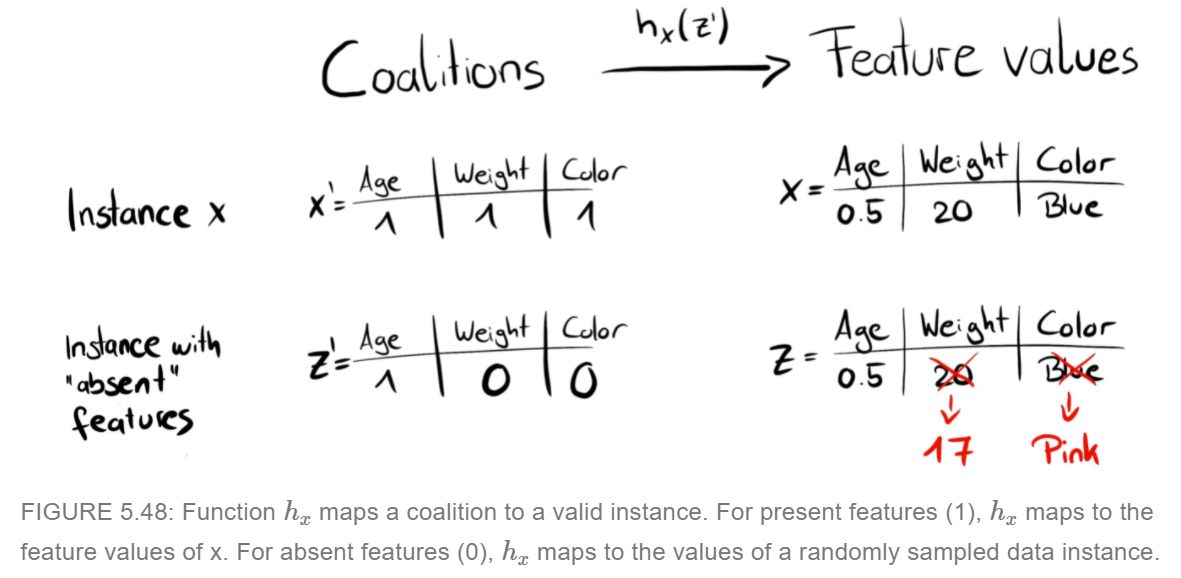 Coalitions hₓ(z') Feature values
Instance x x' = Age Weight Color x = Age Weight Color
1 1 1 0.5 20 Blue
Instance with "absent" features z' = Age Weight Color z = Age Weight Color
1 0 0 0.5 20 Blue
17 Pink
FIGURE 5.48: Function hₓ maps a coalition to a valid instance. For present features (1), hₓ maps to the
feature values of x. For absent features (0), hₓ maps to the values of a randomly sampled data instance.